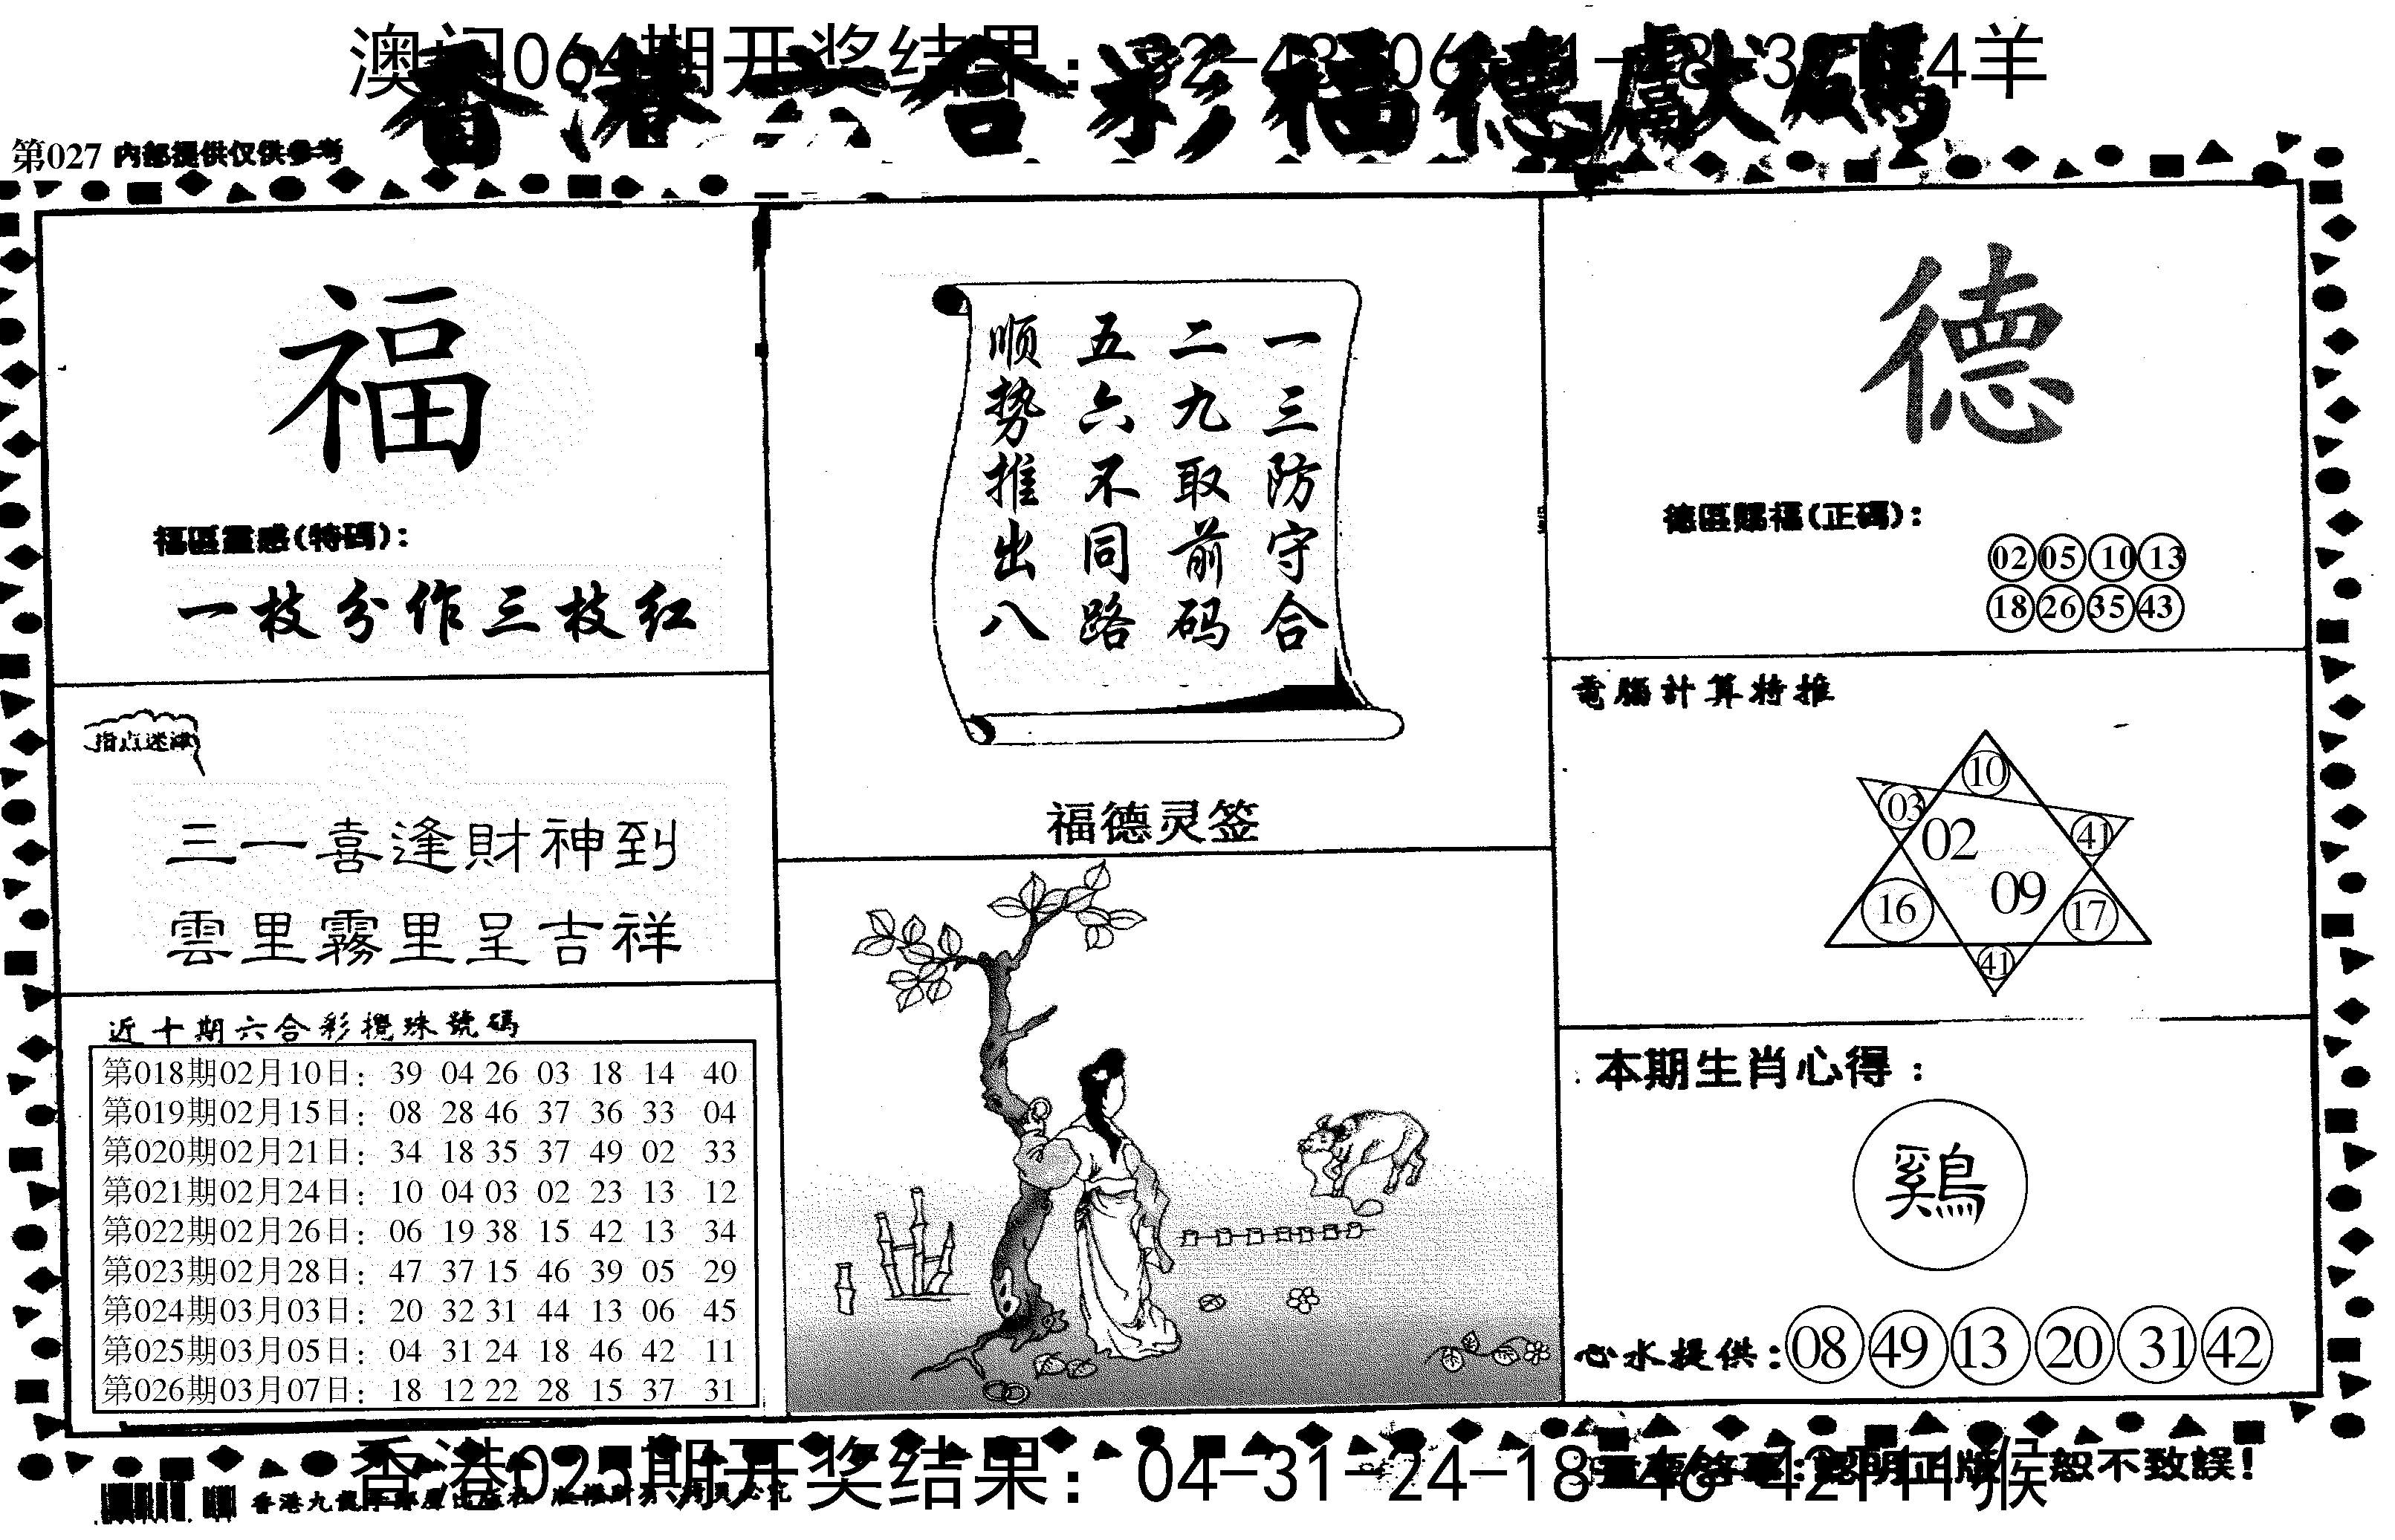 香港六合彩福德獻碼
第027 内部提供仅供參考
福
福區靈感(特碼):
一枝分作三枝红
指点迷津
三一喜逢財神到
雲里霧里呈吉祥
近十期六合彩攪珠號碼
第018期02月10日: 39 04 26 03 18 14 40
第019期02月15日: 08 28 46 37 36 33 04
第020期02月21日: 34 18 35 37 49 02 33
第021期02月24日: 10 04 03 02 23 13 12
第022期02月26日: 06 19 38 15 42 13 34
第023期02月28日: 47 37 15 46 39 05 29
第024期03月03日: 20 32 31 44 13 06 45
第025期03月05日: 04 31 24 18 46 42 11
第026期03月07日: 18 12 22 28 15 37 31
一三防守合
二九取前码
五六不同路
顺势推出八
福德灵签
德
德區賜福(正碼):
02 05 10 13
18 26 35 43
電腦計算特推
10
03
41
02
09
16
17
41
本期生肖心得:
鷄
心水提供: 08 49 13 20 31 42
香港025期开奖结果: 04-31-24-18-46-42T11猴
恕不致誤!